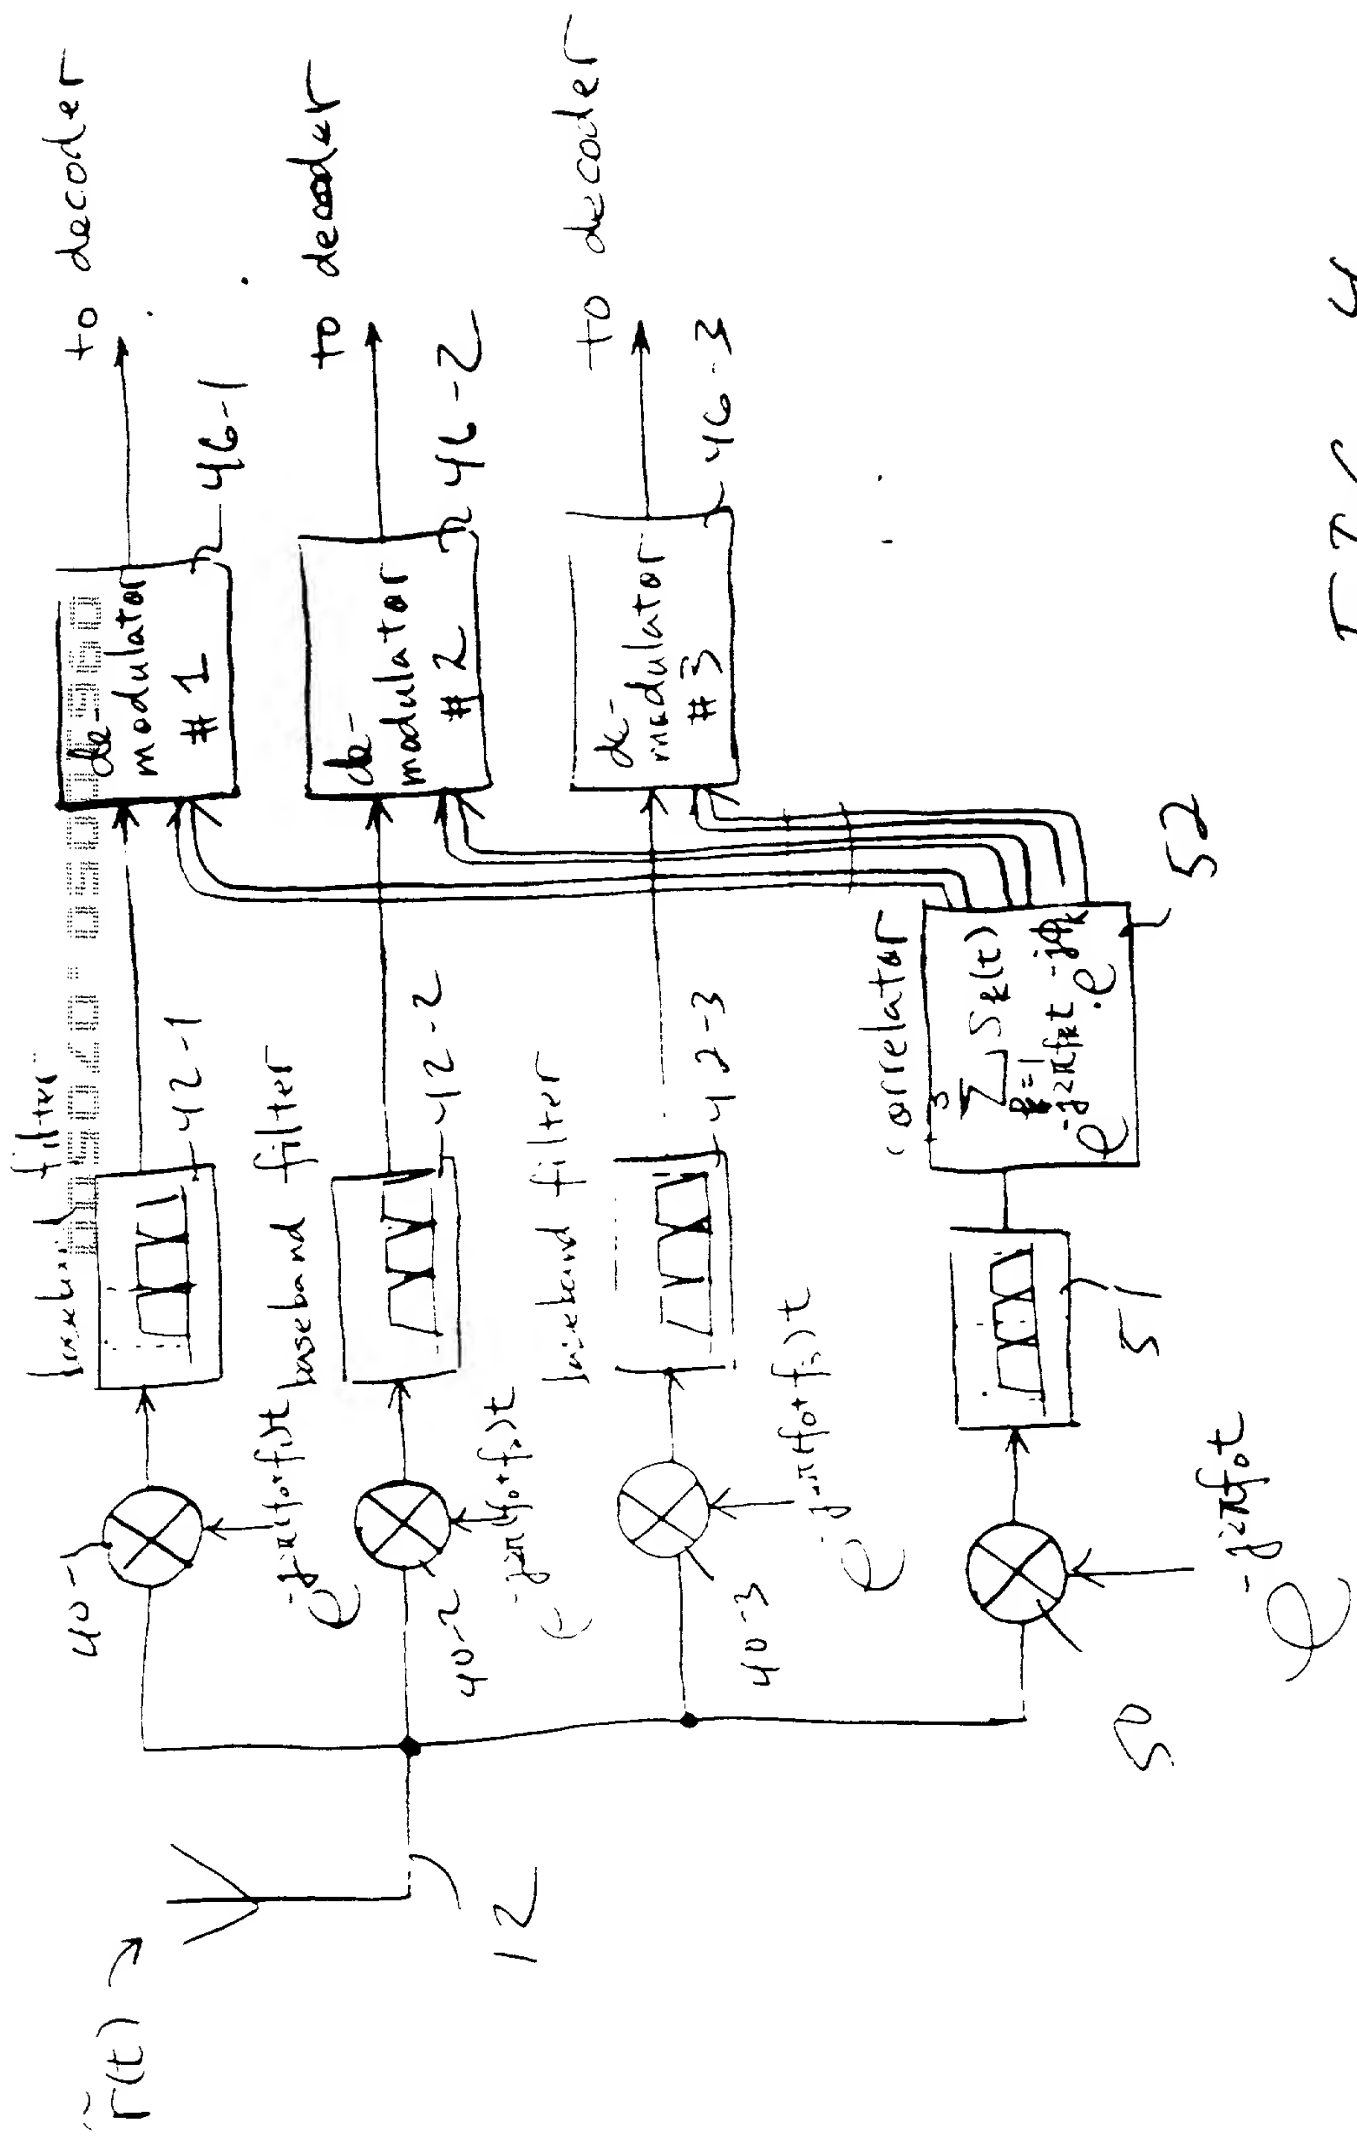 r̃(t)
12
40-1
e^-j2π(f₀+f₁)t
baseband filter
42-1
de-
modulator
#1
46-1
to decoder
40-2
e^-j2π(f₀+f₂)t
baseband filter
42-2
de-
modulator
#2
46-2
to decoder
40-3
e^-j2π(f₀+f₃)t
baseband filter
42-3
de-
modulator
#3
46-3
to decoder
50
e^-j2πf₀t
51
correlator
3
Σ S_k(t)
k=1
e^-j2πf_kt · e^-jΦ_k
52
FIG. 4